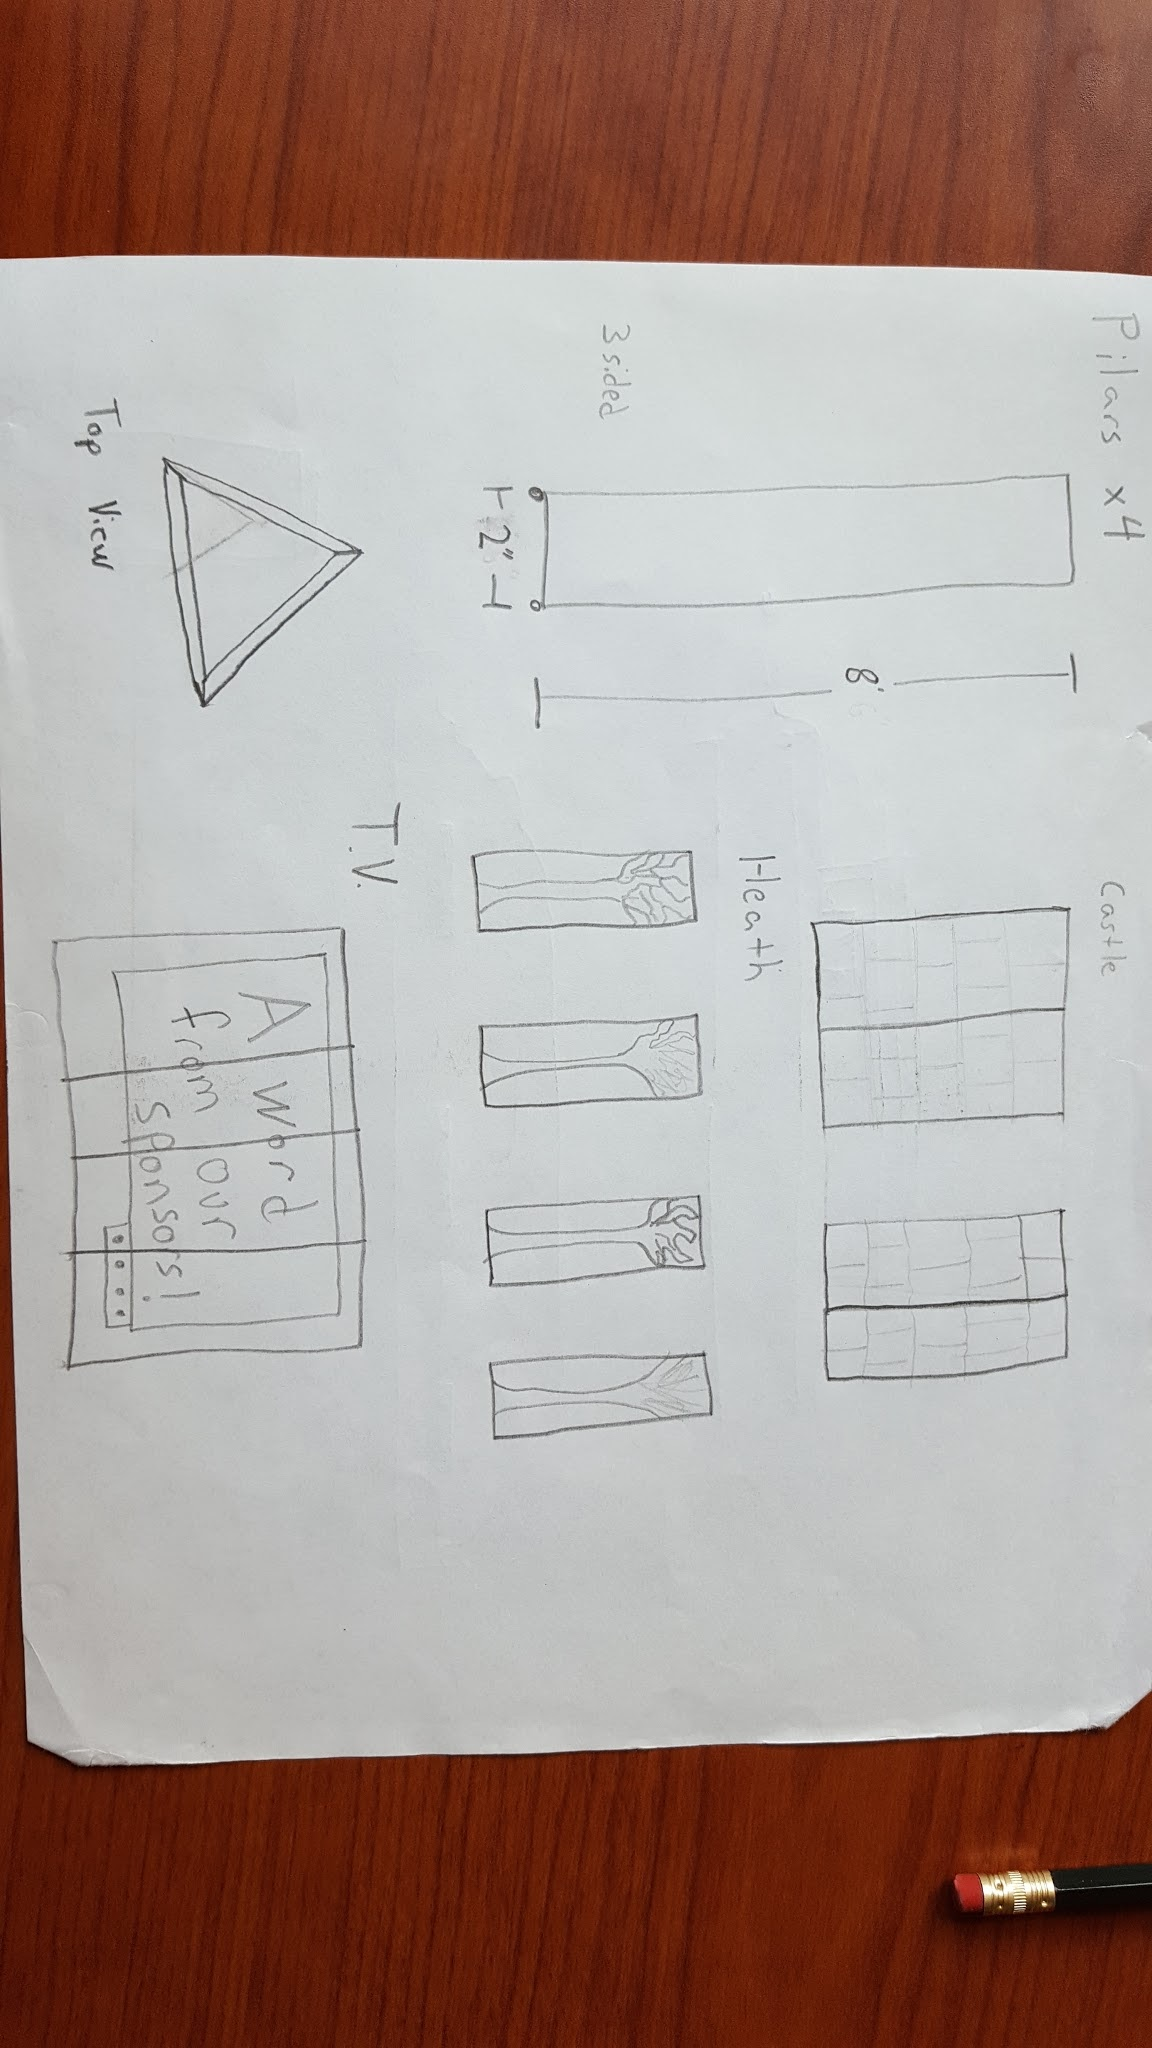 Pilars x4
3 sided
2"
8'
Top View
Castle
Heath
T.V.
A Word
from our
sponsors!